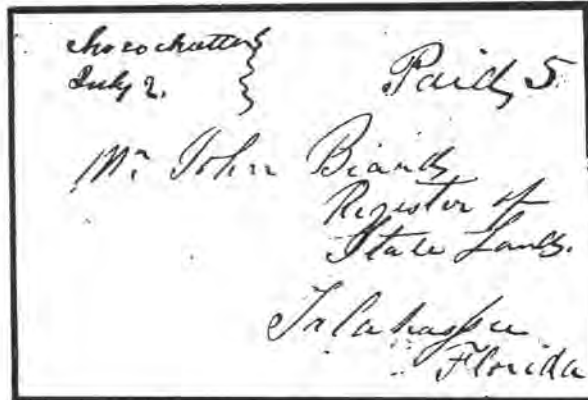 Chocochattee
July 2.
Paid 5
Mr. John Biard
Register of
State Lands.
Talahassee
Florida